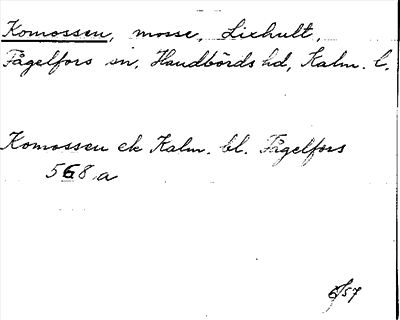 Komossen, mosse, Lixhult,
Fågelfors sn, Handbörds hd, Kalm. l.
Komossen ek Kalm. bl. Fågelfors
568 a
6/57